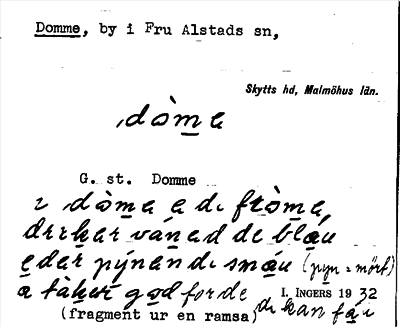 Domme, by i Fru Alstads sn,
Skytts hd, Malmöhus län.
dòma
G. st. Domme
i dòma e di fròma,
drekar vàned de blåu
eder pýnandi småu (pyn = mört)
a tàker god for de di kan fåu
I. INGERS 1932
(fragment ur en ramsa)